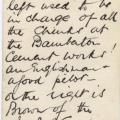 left used to be
in charge of all
the Chinks at
the Bamburton
Cement works!
an Englishman &
a good pilot -
on the right is
Brown of the